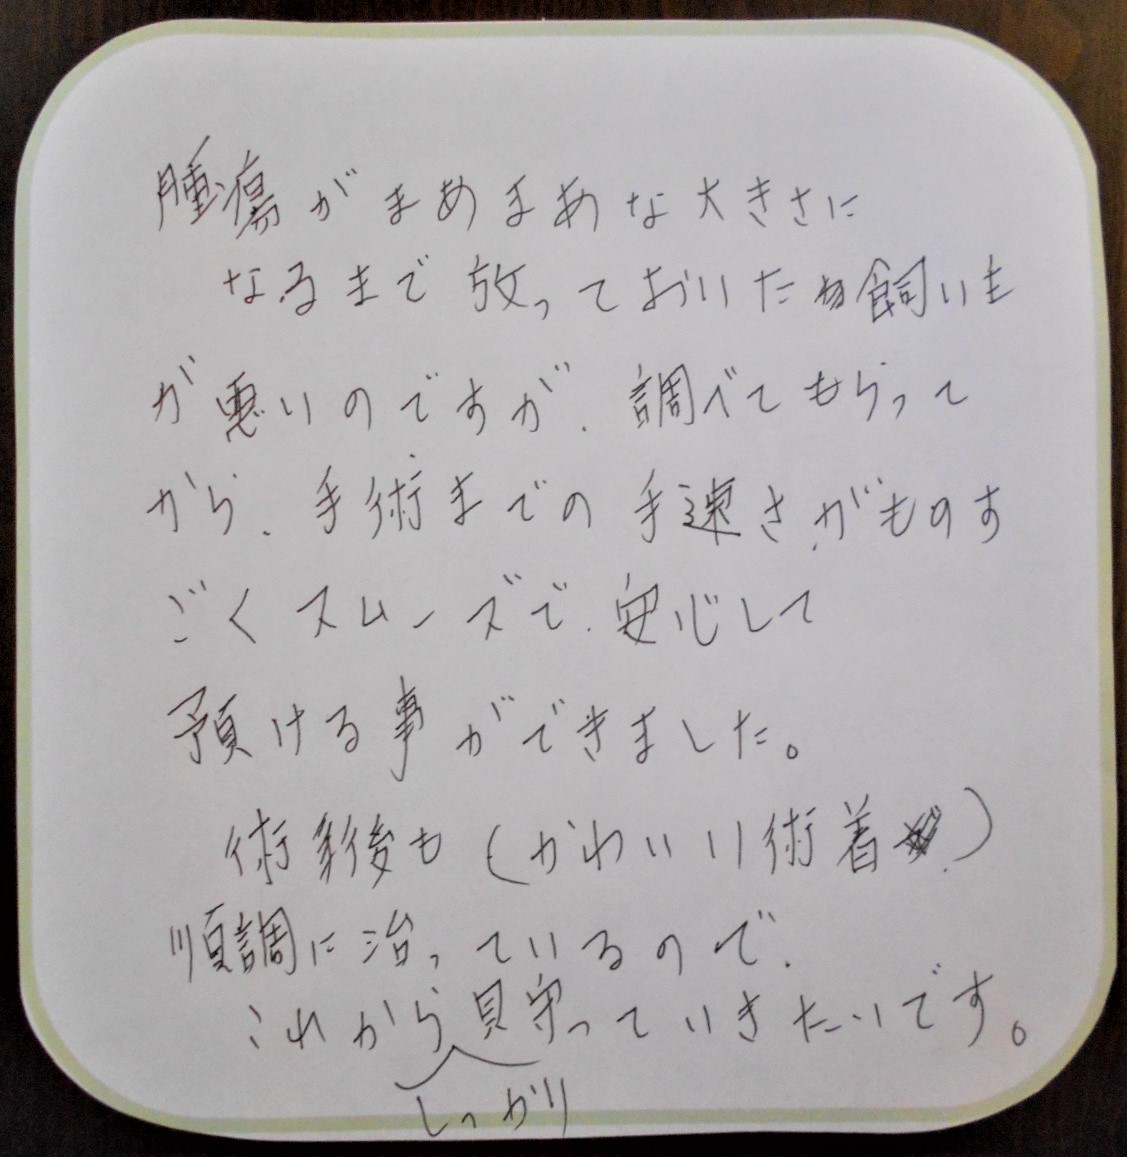 腫瘍がまあまあな大きさに
なるまで放っておいた飼い主
が悪いのですが、調べてもらって
から、手術までの手速さがものす
ごくスムーズで、安心して
預ける事ができました。
術後も(かわいい術着)
順調に治っているので、
これからしっかり見守っていきたいです。